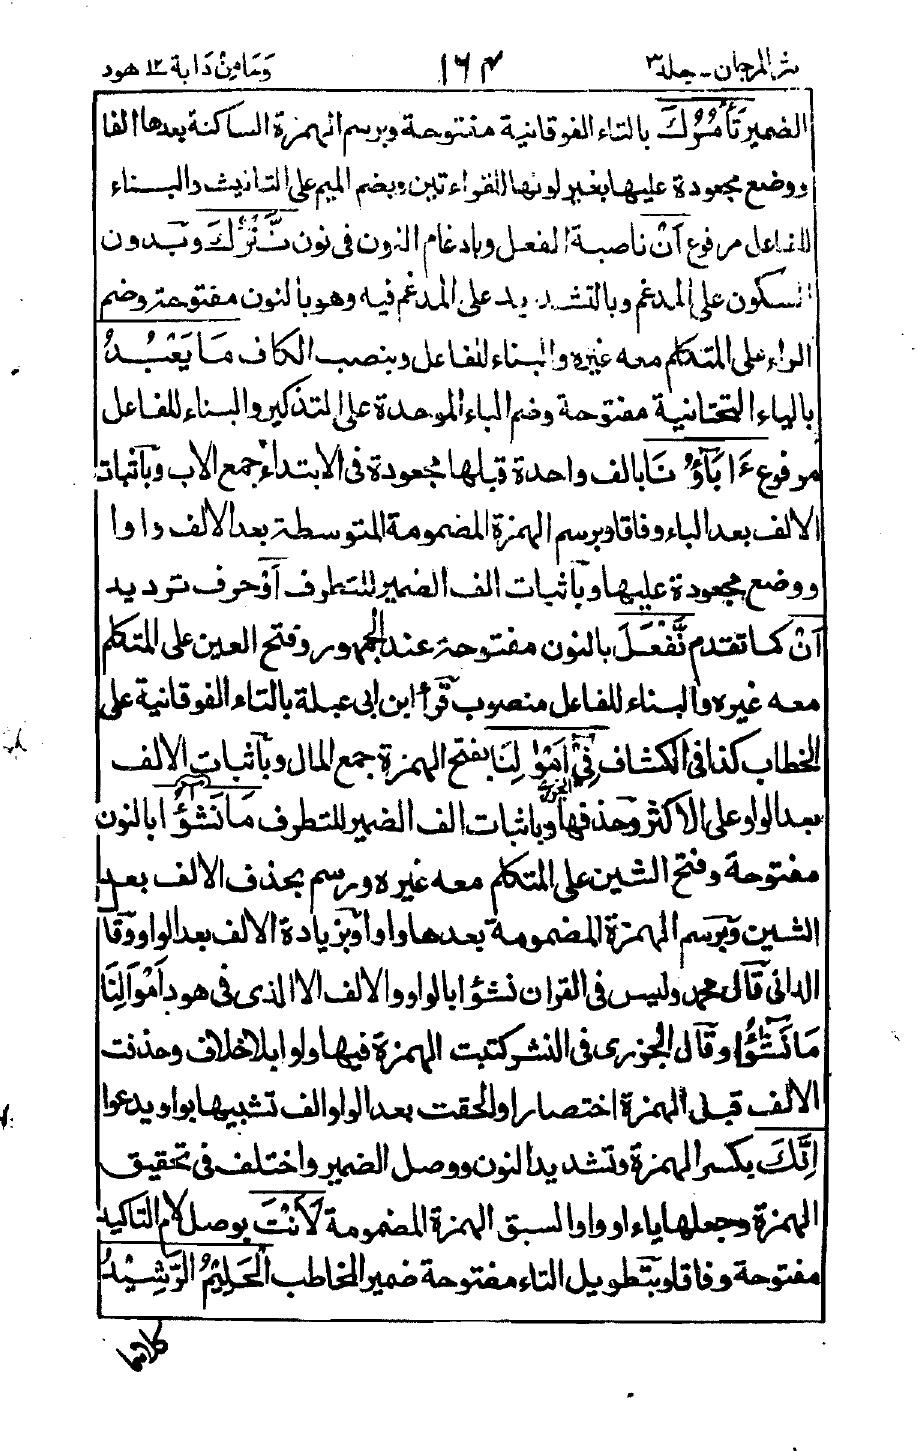 نثر المرجان - جلد ٣ ١٦٤ وَمَا مِنْ دَابة ١٢ هود
الضمير تَأْمُرُكَ بالتاء الفوقانية مفتوحة وبرسم الهمزة الساكنة بعدها الفا
ووضع مجعودة عليها بغير لونها للقراءتين وبضم الميم على التانيث والبناء
للفاعل مرفوع اَنْ ناصبة الفعل وبادغام النون فى نون نَّتْرُكَ وبدون
السكون على المدغم وبالتشديد على المدغم فيه وهو بالنون مفتوحة وضم
الراء على المتكلم معه غيره والبناء للفاعل وبنصب الكاف مَا يَعْبُدُ
بالياء التحتانية مفتوحة وضم الباء الموحدة على التذكير والبناء للفاعل
مرفوع ءَابَآؤُنَا بالف واحدة قبلها مجعودة فى الابتداء جمع الاب وباثبات
الالف بعد الباء وفاقا وبرسم الهمزة المضمومة المتوسطة بعد الالف واوا
ووضع مجعودة عليها وباثبات الف الضمير للتطرف اَوْ حرف ترديد
اَنْ كما تقدم نَّفْعَلَ بالنون مفتوحة عند الجمهور وفتح العين على المتكلم
معه غيره والبناء للفاعل منصوب قرأ ابن ابى عبلة بالتاء الفوقانية على
الخطاب كذا فى الكشاف فِىٓ اَمْوٰلِنَا بفتح الهمزة جمع المال وباثبات الالف
بعد الواو على الاكثر وحذفها وباثبات الف الضمير للتطرف مَا نَشٰٓؤُا بالنون
مفتوحة وفتح الشين على المتكلم معه غيره ورسم بحذف الالف بعد
الشين وبرسم الهمزة المضمومة بعدها واوا وبزيادة الالف بعد الواو وقا
الدانى قال محمد وليس فى القران نشؤا بالواو والالف الا الذى فى هود اَمْوَالِنَا
مَا نَشٰٓؤُا وقال الجزرى فى النشر كتبت الهمزة فيها واوا بلاخلاف وحذفت
الالف قبل الهمزة اختصارا والحقت بعد الواو الف تشبيها بواو يدعوا
اِنَّكَ بكسر الهمزة وتشديد النون ووصل الضمير واختلف فى تحقيق
الهمزة وجعلها ياء او واوا لسبق الهمزة المضمومة لَاَنْتَ بوصل لام التاكيد
مفتوحة وفاقا وبتطويل التاء مفتوحة ضمير المخاطب الْحَلِيْمُ الرَّشِيْدُ
كلاهما